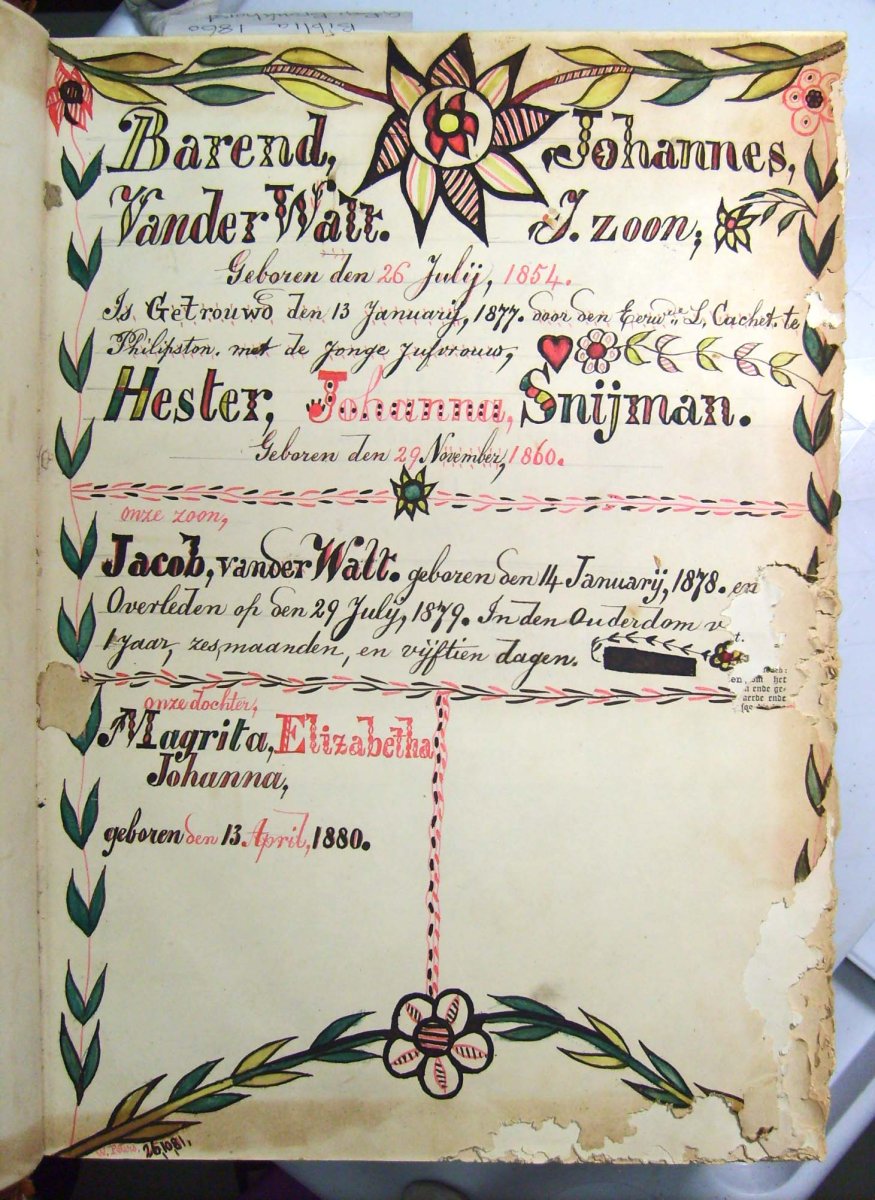 Biblia 1860
Barend, Johannes,
Vander Walt. J. zoon,
Geboren den 26 Julij, 1854.
Is Getrouwd den 13 Januarij, 1877. door den Eerwde. L. Cachet. te
Philipston. met de Jonge Jufvrouw,
Hester, Johanna, Snijman.
Geboren den 29 November, 1860.
onze zoon,
Jacob, vander Walt. geboren den 14 Januarij, 1878. en
Overleden op den 29 Julij, 1879. In den Ouderdom v
1 Jaar, zes maanden, en vijftien dagen.
en, om het
ende ge-
aerde ende
onze dochter,
Magrita, Elizabetha
Johanna,
geboren den 13 April, 1880.
W. Peters. 26,10,81,